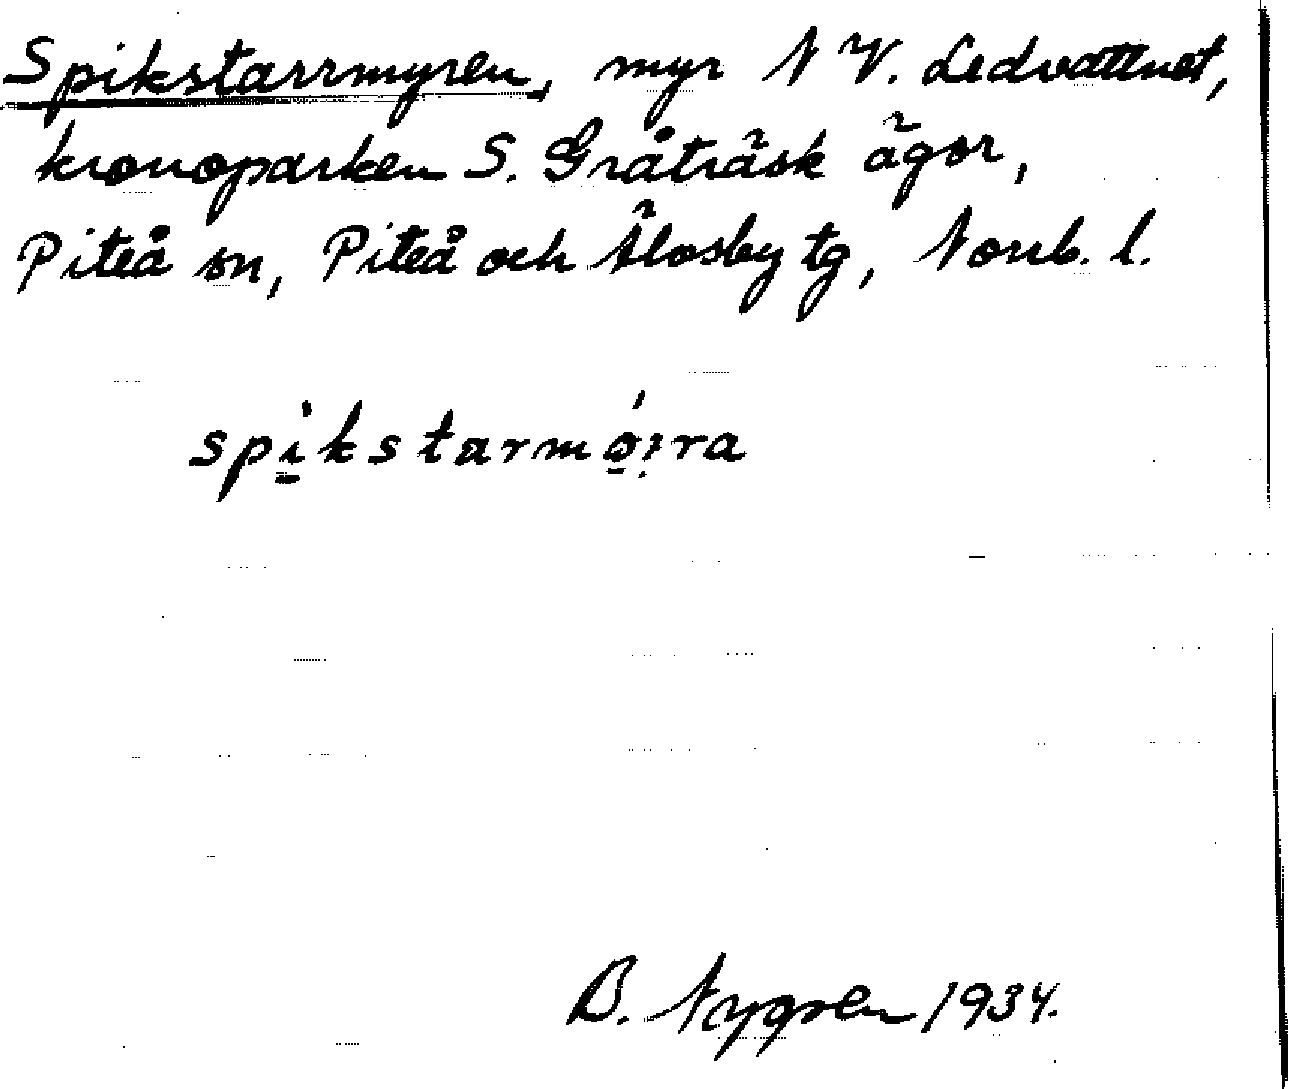 Spikstarrmyren, myr NV. Ledvattnet,
kronoparken S. Gråträsk ägor,
Piteå sn, Piteå och Älvsby tg, Norrb. l.
B. Nygren 1934.